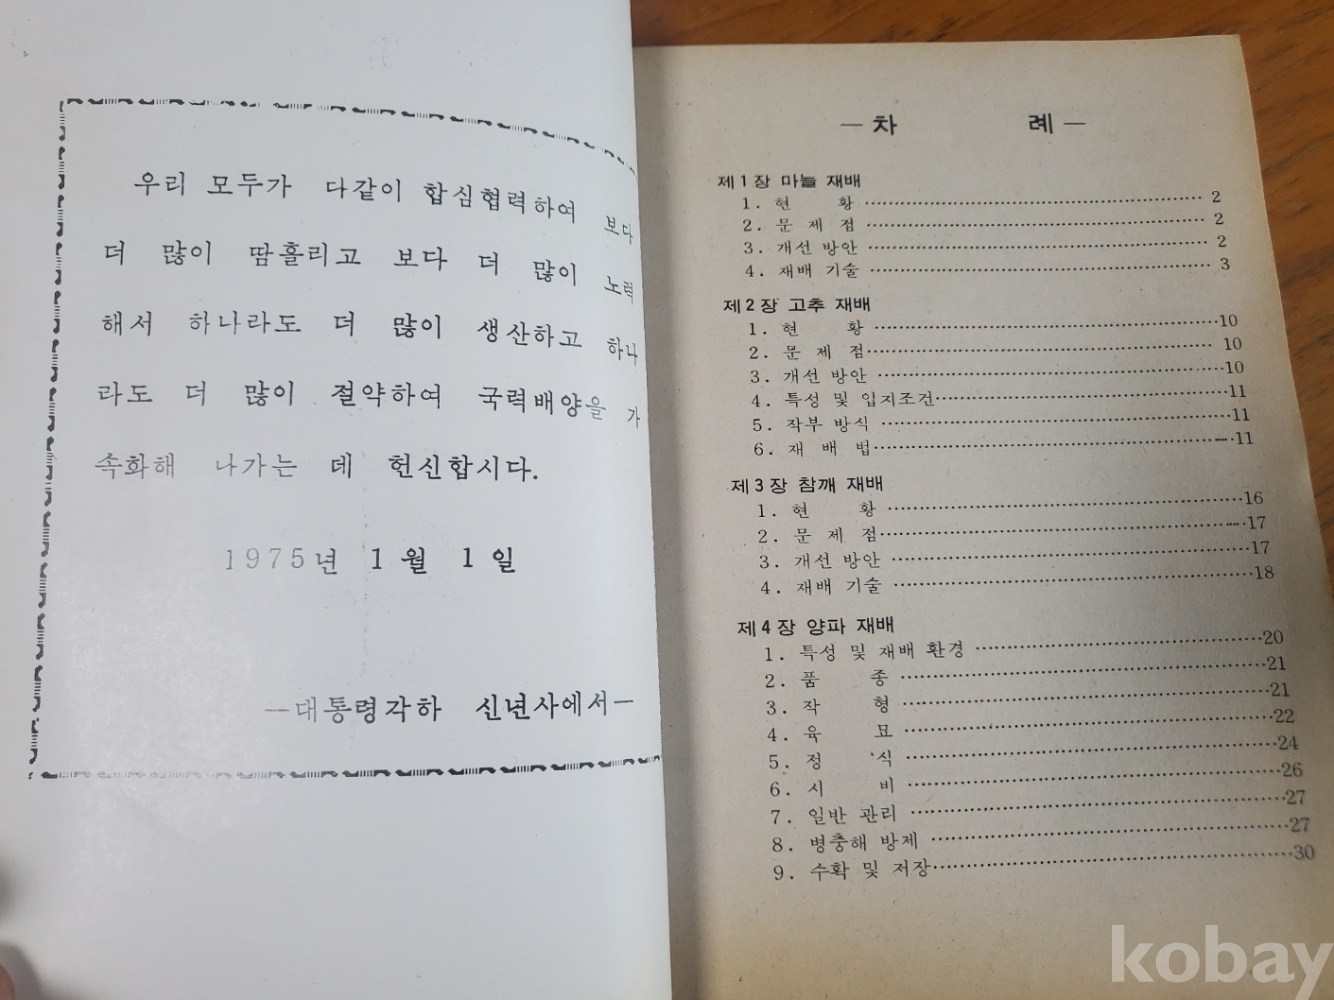 우리 모두가 다같이 합심협력하여 보다
더 많이 땀흘리고 보다 더 많이 노력
해서 하나라도 더 많이 생산하고 하나
라도 더 많이 절약하여 국력배양을 가
속화해 나가는 데 헌신합시다.
1975년 1월 1일
—대통령각하 신년사에서—
—차 례—
제1장 마늘 재배
1. 현 황 ⋯⋯⋯⋯ 2
2. 문 제 점 ⋯⋯⋯⋯ 2
3. 개선 방안 ⋯⋯⋯⋯ 2
4. 재배 기술 ⋯⋯⋯⋯ 3
제2장 고추 재배
1. 현 황 ⋯⋯⋯⋯10
2. 문 제 점⋯⋯⋯⋯ 10
3. 개선 방안 ⋯⋯⋯⋯10
4. 특성 및 입지조건⋯⋯⋯⋯11
5. 작부 방식 ⋯⋯⋯⋯11
6. 재 배 법 ⋯⋯⋯⋯11
제3장 참깨 재배
1. 현 황 ⋯⋯⋯⋯16
2. 문 제 점⋯⋯⋯⋯17
3. 개선 방안 ⋯⋯⋯⋯17
4. 재배 기술 ⋯⋯⋯⋯18
제4장 양파 재배
1. 특성 및 재배 환경 ⋯⋯⋯⋯20
2. 품 종 ⋯⋯⋯⋯21
3. 작 형 ⋯⋯⋯⋯21
4. 육 묘 ⋯⋯⋯⋯22
5. 정 식 ⋯⋯⋯⋯24
6. 시 비 ⋯⋯⋯⋯26
7. 일반 관리 ⋯⋯⋯⋯27
8. 병충해 방제 ⋯⋯⋯⋯27
9. 수확 및 저장⋯⋯⋯⋯30
kobay